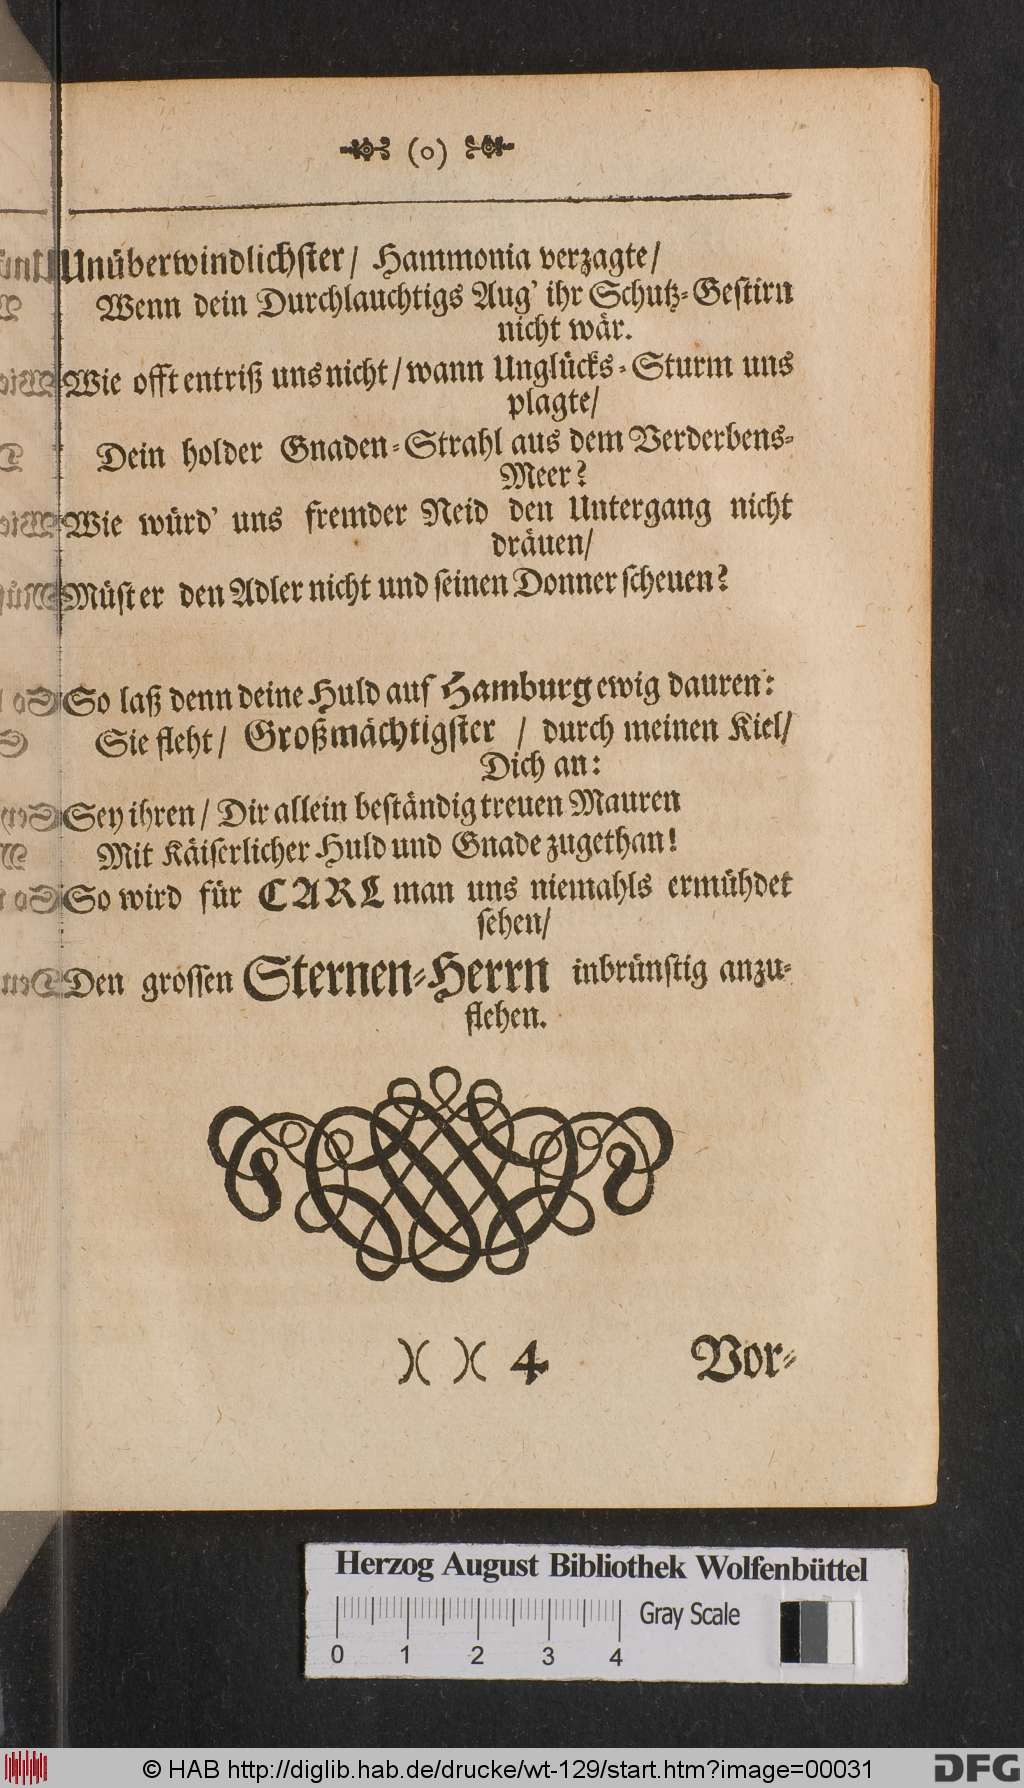 (o)
Unüberwindlichster/ Hammonia verzagte/
Wenn dein Durchlauchtigs Aug' ihr Schutz-Gestirn
nicht wär.
Wie offt entriß uns nicht/ wann Unglücks-Sturm uns
plagte/
Dein holder Gnaden-Strahl aus dem Verderbens-
Meer?
Wie würd' uns fremder Neid den Untergang nicht
dräuen/
Müst er den Adler nicht und seinen Donner scheuen?
So laß denn deine Huld auf Hamburg ewig dauren:
Sie fleht/ Großmächtigster / durch meinen Kiel/
Dich an:
Sey ihren/ Dir allein beständig treuen Mauren
Mit Käiserlicher Huld und Gnade zugethan!
So wird für CARL man uns niemahls ermühdet
sehen/
Den grossen Sternen-Herrn inbrünstig anzu-
flehen.
)( )( 4
Vor-
Herzog August Bibliothek Wolfenbüttel
Gray Scale
0 1 2 3 4
© HAB http://diglib.hab.de/drucke/wt-129/start.htm?image=00031
DFG